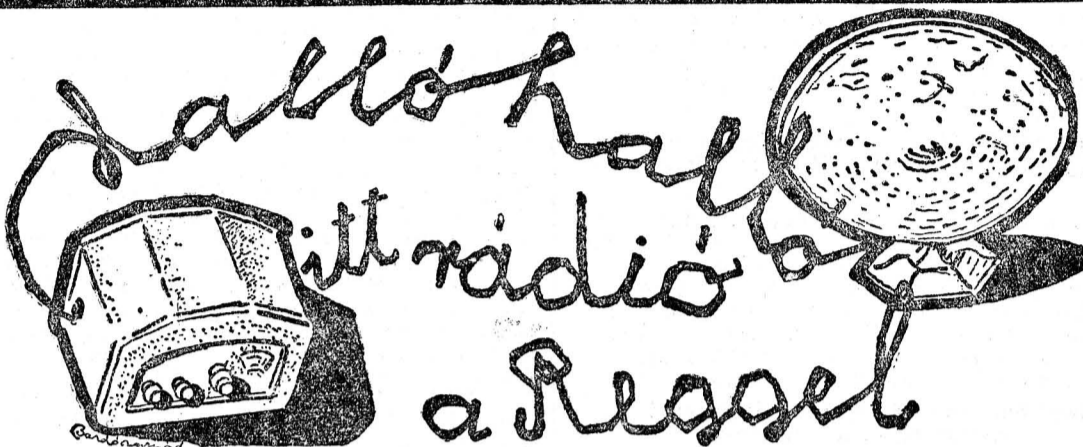 Halló hallo
itt rádió
a Reggel